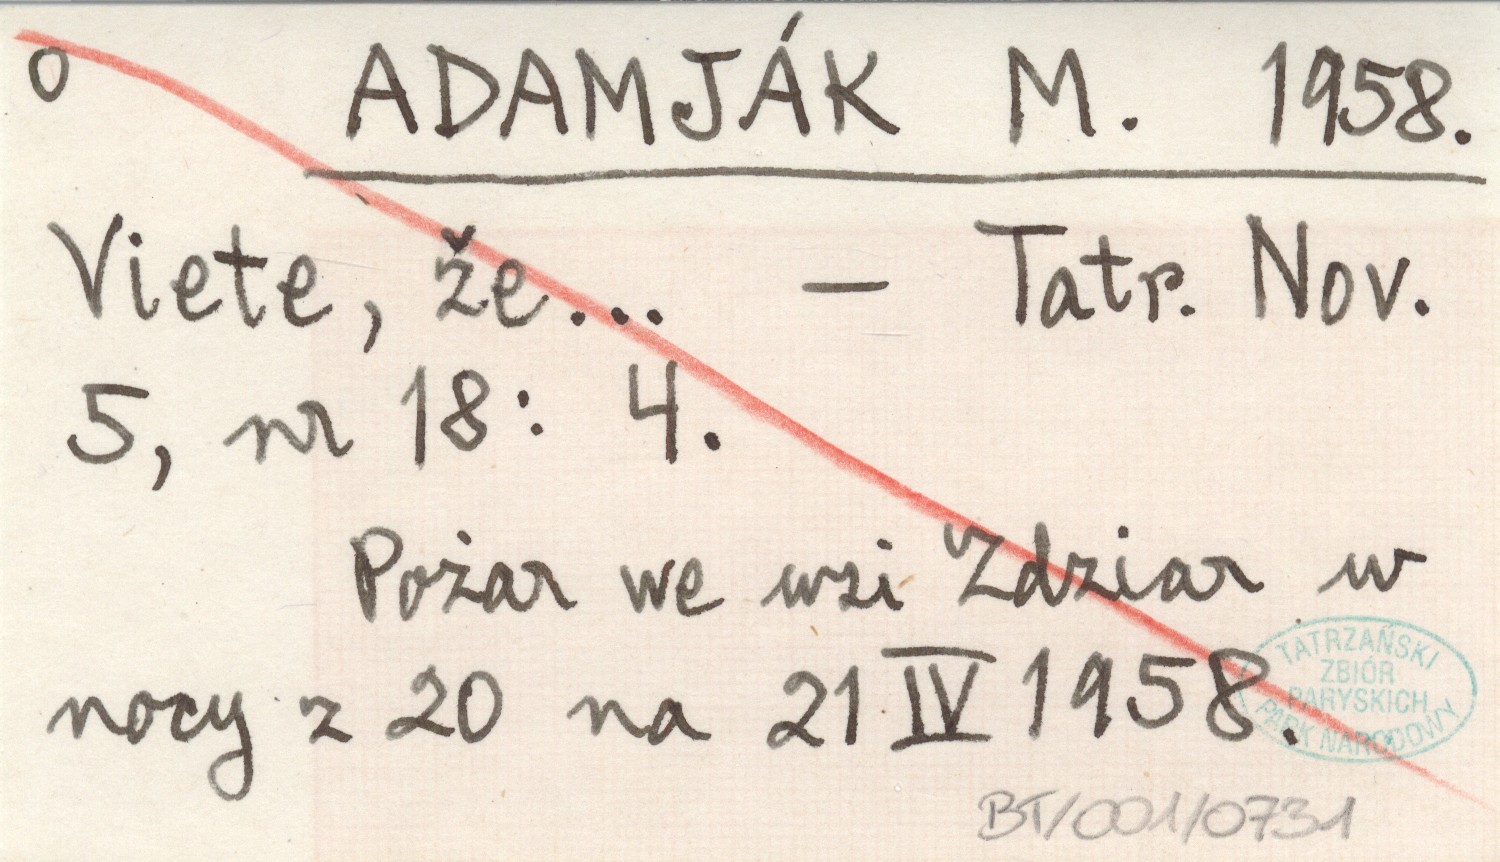 o ADAMJÁK M. 1958.
Viete, že... — Tatr. Nov.
5, nr 18: 4.
Pożar we wsi Ždziar w
nocy z 20 na 21 IV 1958.
TATRZAŃSKI
ZBIÓR
PARYSKICH
PARK NARODOWY
BT/001/0731